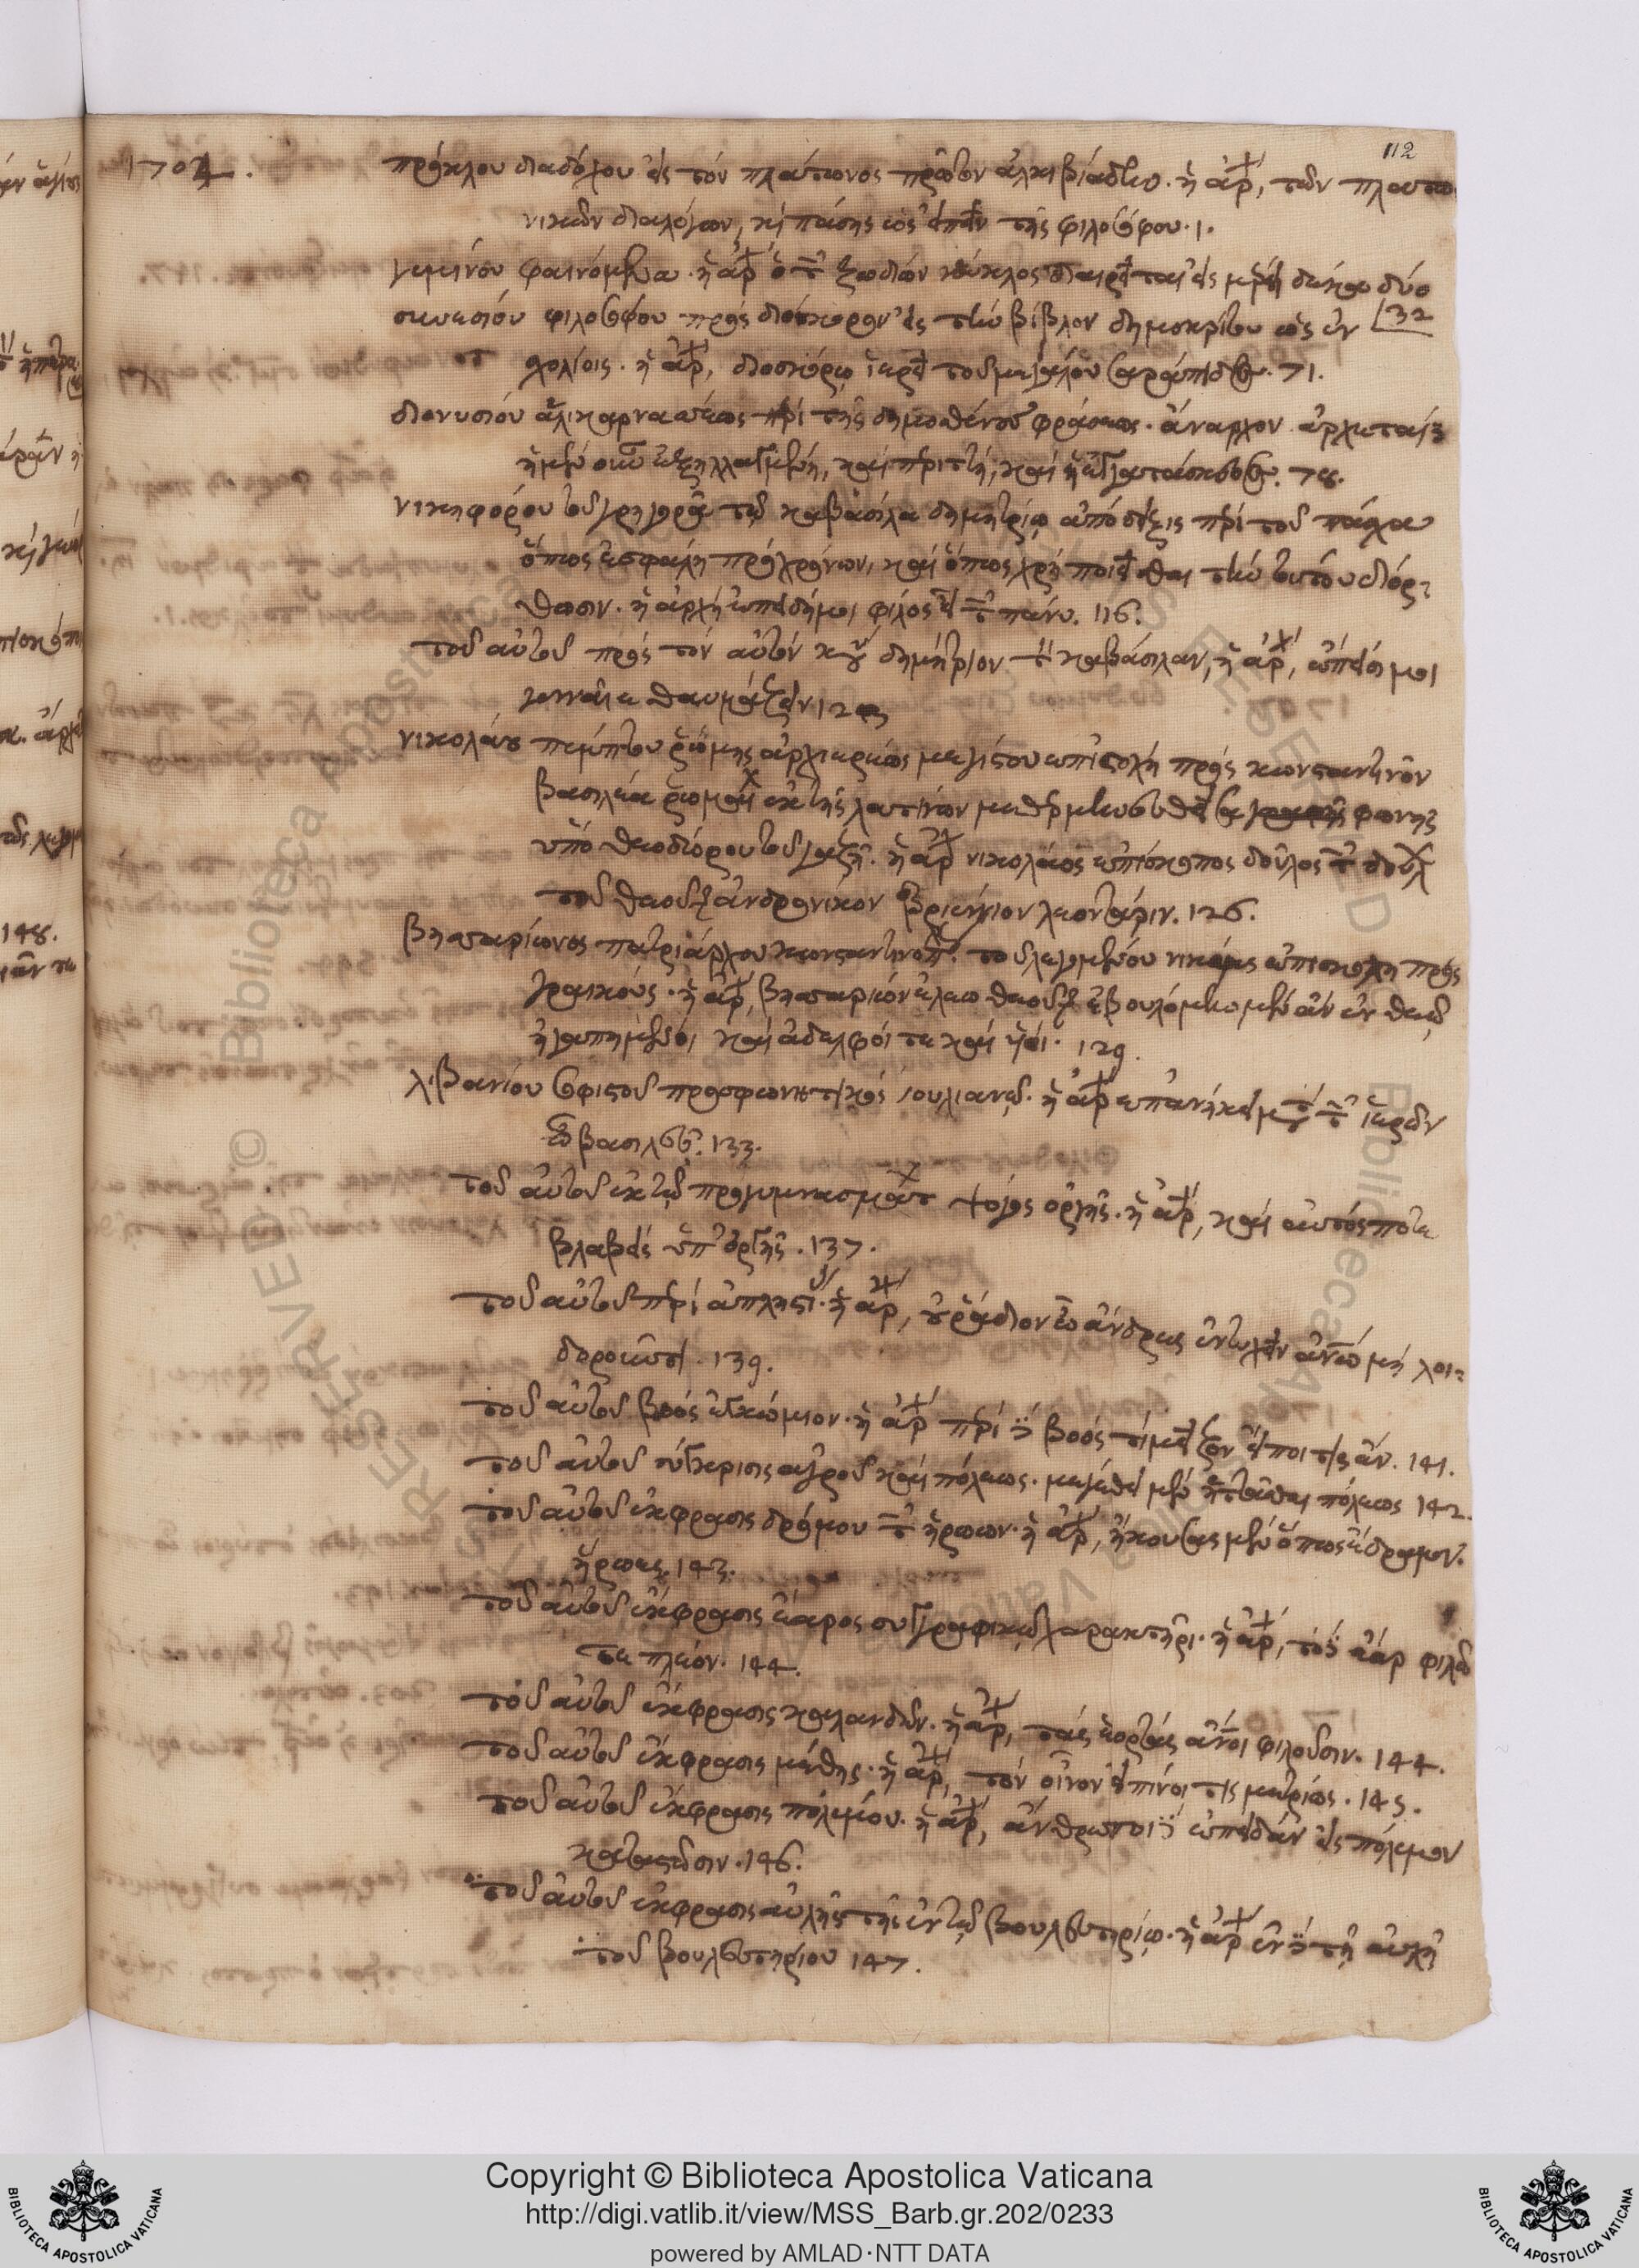 112
1704. πρόκλου διαδόχου εἰς τὸν πλάτωνος πρῶτον ἀλκιβιάδην. ἡ ἀρχ, τῶν πλατω
νικῶν διαλόγων, κὶ πάσης ὡς εἰπεῖν τῆς φιλοσόφου. 1.
γεμίνου φαινόμενα. ἡ ἀρχ ὁ τῶν ζωδίων κύκλος διαιρεῖται εἰς μέρη δέκα δύο
συνεσίου φιλοσόφου πρὸς διόσκορον εἰς τὴν βίβλον δημοκρίτου ὡς ἐν [32
σχολίοις. ἡ ἀρχ, διοσκόρῳ ἱερεῖ τοῦ μεγάλου σαράπιδος. 71.
διονυσίου ἁλικαρνασέως περὶ τῆς δημοσθένους φράσεως. ἄναρχον. ἄρχεται
ἡ μὲν οὖν ἐξηλλαγμένη, καὶ περιττὴ, καὶ ἐγκατάσκευος. 78.
νικηφόρου τοῦ γρηγορᾶ τῷ καβάσιλα δημητρίῳ ἀπόδειξις περὶ τοῦ πάσχα
ὅπως ἐσφάλη πρὸ χρόνων, καὶ ὅπως χρὴ ποιεῖσθαι τὴν τούτου διόρ-
θωσιν. ἡ ἀρχὴ ἐπειδή μοι φίλος εἶ τῶν πάνυ. 116.
τοῦ αὐτοῦ πρὸς τὸν αὐτὸν κὺν δημήτριον τὸν καβάσιλαν, ἡ ἀρχ, ἔπεισί μοι
γενναῖε θαυμάζειν 125
νικολάου πέμπτου ῥώμης ἀρχιερέως μεγίστου ἐπιστολὴ πρὸς κωνσταντῖνον
βασιλέα ῥωμαί ἐκ τῆς λατίνων μεθερμηνευθεῖσα φωνῆς
ὑπὸ θεοδώρου τοῦ γαζῆ. ἡ ἀρχ νικολάος ἐπίσκοπος δοῦλος τῶν δούλ
τοῦ θεοῦ ἀνδρόνικον βριέννιον λεοντάριν. 126.
βησσαρίωνος πατριάρχου κωνσταντινοπ. τοῦ λεγομένου νικαίας ἐπιστολὴ πρὸς
γραικούς. ἡ ἀρχ, βησσαρίων ἐλέῳ θεοῦ ἐβουλόμην μὲν ἂν ἐν θεῷ
ἠγαπημένοι καὶ ἀδελφοί τε καὶ υἱοί. 129.
λιβανίου σοφιστοῦ προσφωνητικὸς ἰουλιανῷ. ἡ ἀρχ ἐπανήκει μετὰ τῶν ἱερῶν
ὦ βασιλεῦ. 133.
τοῦ αὐτοῦ ἐκ τῶν προγυμνασμάτ ψόγος ὀργῆς. ἡ ἀρχ, καὶ αὐτός ποτε
βλαβεὶς ὑπ' ὀργῆς. 137.
τοῦ αὐτοῦ περὶ ἀπληστί. ἡ ἀρχ, οὐ ῥάδιον ὦ ἄνδρες ἐντυχεῖν ἀνῷ μὴ λοι-
δοροῦντι. 139.
τοῦ αὐτοῦ βοὸς ἐγκώμιον. ἡ ἀρχ περὶ βοὸς τί μεῖζον εἴποι τις ἄν. 141.
τοῦ αὐτοῦ σύγκρισις ἀγροῦ καὶ πόλεως. μεγέθει μὲν ἡττᾶσθαι πόλεως 142.
τοῦ αὐτοῦ ἔκφρασις δρόμου τῶν ἡρώων. ἡ ἀρχ, ἤκουσας μὲν ὅπως ἔδραμον
ἥρωες. 143.
τοῦ αὐτοῦ ἔκφρασις ἔαρος συγγραφικῷ χαρακτῆρι. ἡ ἀρχ, τὸ ἔαρ φιλῶ
τε πλέον. 144.
τοῦ αὐτοῦ ἔκφρασις καλανδῶν. ἡ ἀρχ, τὰς ἑορτὰς ἀνοι φιλοῦσιν. 144.
τοῦ αὐτοῦ ἔκφρασις μέθης. ἡ ἀρχ, τὸν οἶνον εἰ πίνοι τις μετρίως. 145.
τοῦ αὐτοῦ ἔκφρασις πολέμου. ἡ ἀρχ, ἄνθρωποι ἐπειδὰν εἰς πόλεμον
καταστῶσιν. 146.
τοῦ αὐτοῦ ἔκφρασις αὐλῆς τῆς ἐν τῷ βουλευτηρίῳ. ἡ ἀρχ ἐν τῇ αὐλῇ
τοῦ βουλευτηρίου 147.
Copyright © Biblioteca Apostolica Vaticana
http://digi.vatlib.it/view/MSS_Barb.gr.202/0233
powered by AMLAD·NTT DATA
BIBLIOTECA APOSTOLICA VATICANA
BIBLIOTECA APOSTOLICA VATICANA